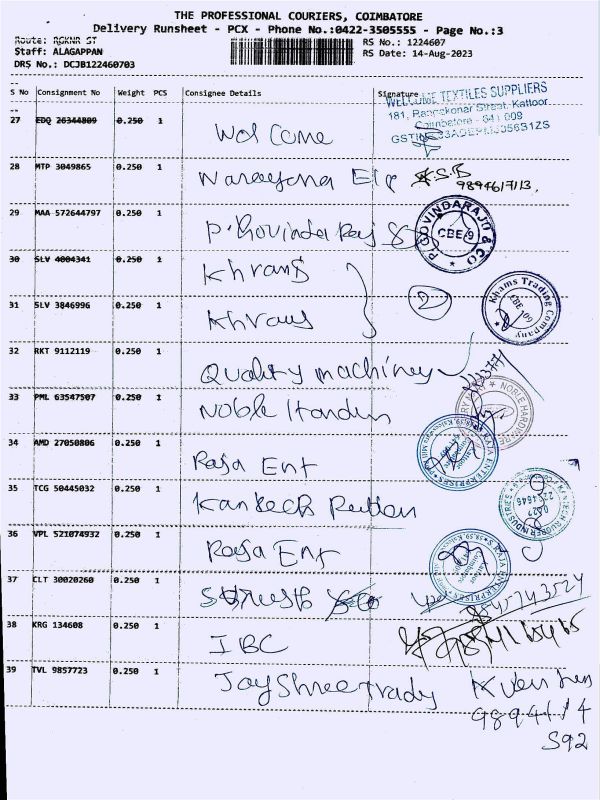 THE PROFESSIONAL COURIERS, COIMBATORE
Delivery Runsheet - PCX - Phone No.:0422-3505555 - Page No.:3
Route: RGKNR ST
RS No.: 1224607
Staff: ALAGAPPAN
RS Date: 14-Aug-2023
DRS No.: DCJB122460703
S No Consignment No Weight PCS Consignee Details Signature
WELCOME TEXTILES SUPPLIERS
181, Street, Kattoor
Coimbatore - 641 009
27 EDQ 26344809 0.250 1 Welcome
28 MTP 3049865 0.250 1 Narayana Ele K.S.B
9894617113,
29 MAA 572644797 0.250 1 P. Govinda Raj
P. GOVINDARAJU & CO
CBE-9
30 SLV 4004341 0.250 1 Khrans
2
31 SLV 3846996 0.250 1 Khrans
Khams Trading Company
CBE 109
32 RKT 9112119 0.250 1 Quality machiney
33 PML 63547507 0.250 1 Noble
NOBLE HARDWARE
34 AMD 27050806 0.250 1 Raja Ent
RAJA ENTERPRISES
35 TCG 50445032 0.250 1 Kantech
KENTECH RUBBER INDUSTRIES
0422
36 VPL 521074932 0.250 1 Raja Ent
RAJA ENTERPRISES
37 CLT 30020260 0.250 1
9845743524
38 KRG 134608 0.250 1 IBC
39 TVL 9857723 0.250 1 Jay Shree Trady
9894114
592